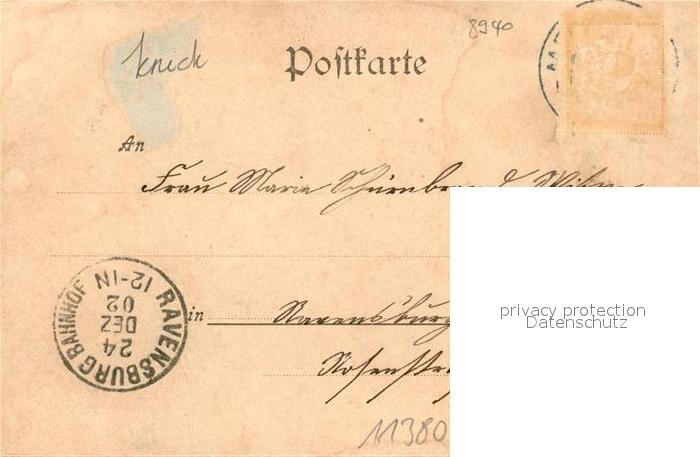 8940
knick
Postkarte
An
Frau Marie
in Ravensburg
RAVENSBURG BAHNHOF
12-1N
02
DEZ
24
11380
privacy protection
Datenschutz